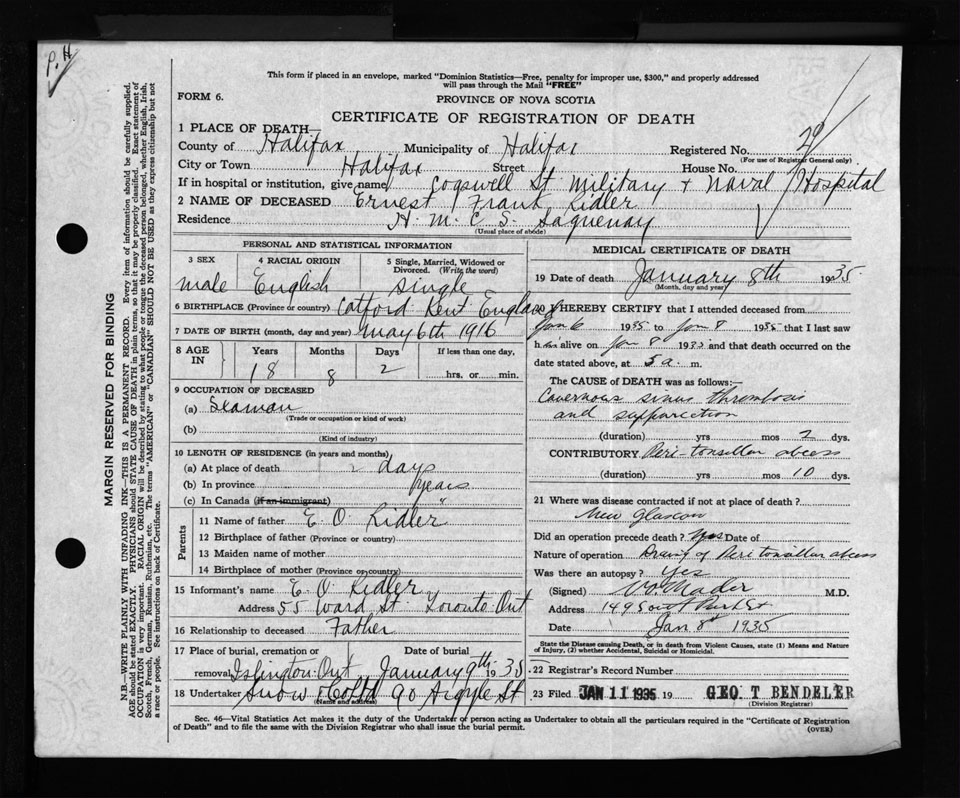 P.H
This form if placed in an envelope, marked "Dominion Statistics—Free, penalty for improper use, $300," and properly addressed
will pass through the Mail "FREE"
FORM 6.
PROVINCE OF NOVA SCOTIA
CERTIFICATE OF REGISTRATION OF DEATH
1 PLACE OF DEATH—
County of Halifax Municipality of Halifax Registered No. 29
(For use of Registrar General only)
City or Town Halifax Street House No.
If in hospital or institution, give name Cogswell St Military + Naval Hospital
2 NAME OF DECEASED Ernest Frank Ridler
Residence H. M. C. S. Saguenay
(Usual place of abode)
PERSONAL AND STATISTICAL INFORMATION
3 SEX 4 RACIAL ORIGIN 5 Single, Married, Widowed or
Divorced. (Write the word)
male English single
6 BIRTHPLACE (Province or country) Catford Kent England
7 DATE OF BIRTH (month, day and year) May 6th 1916
8 AGE IN Years Months Days If less than one day,
18 8 2 hrs. or min.
9 OCCUPATION OF DECEASED
(a) Seaman
(Trade or occupation or kind of work)
(b)
(Kind of industry)
10 LENGTH OF RESIDENCE (in years and months)
(a) At place of death 2 days
(b) In province years
(c) In Canada (if an immigrant) "
Parents
11 Name of father E. O. Ridler
12 Birthplace of father (Province or country)
13 Maiden name of mother
14 Birthplace of mother (Province or country)
15 Informant's name E. O. Ridler
Address 55 Ward St. Toronto Ont
16 Relationship to deceased Father
17 Place of burial, cremation or Date of burial
removal Islington Ont January 9th 1935
18 Undertaker Snow & Co Ltd 90 Argyle St
(Name and address)
MEDICAL CERTIFICATE OF DEATH
19 Date of death January 8th 1935
(Month, day and year)
I HEREBY CERTIFY that I attended deceased from
Jan 6 1935 to Jan 8 1935 that I last saw
him alive on Jan 8 1935 and that death occurred on the
date stated above, at 5 a. m.
The CAUSE OF DEATH was as follows:—
Cavernous sinus thrombosis
and suppuration
(duration) yrs mos 2 dys.
CONTRIBUTORY Peri-tonsillar abcess
(duration) yrs mos 10 dys.
21 Where was disease contracted if not at place of death?
New Glasgow
Did an operation precede death? Yes Date of
Nature of operation Drain'g of Peri tonsillar abcess
Was there an autopsy? Yes
(Signed) V.O. Mader M.D.
Address 149
Date Jan 8th 1935
State the Disease causing Death, or in death from Violent Causes, state (1) Means and Nature
of Injury, (2) whether Accidental, Suicidal or Homicidal.
22 Registrar's Record Number
23 Filed JAN 11 1935 19 GEO. T BENDELER
(Division Registrar)
Sec. 46—Vital Statistics Act makes it the duty of the Undertaker or person acting as Undertaker to obtain all the particulars required in the "Certificate of Registration
of Death" and to file the same with the Division Registrar who shall issue the burial permit. (OVER)
MARGIN RESERVED FOR BINDING
N.B.—WRITE PLAINLY WITH UNFADING INK—THIS IS A PERMANENT RECORD. Every item of information should be carefully supplied.
AGE should be stated EXACTLY. PHYSICIANS should STATE CAUSE OF DEATH in plain terms, so that it may be properly classified. Exact statement of
OCCUPATION is very important. RACIAL ORIGIN will be described by stating to what people or tongue the deceased person belonged, whether English, Irish,
Scotch, French, German, Russian, Ruthenian, etc. The terms "AMERICAN" or "CANADIAN" SHOULD NOT BE USED as they express citizenship but not
a race or people. See instructions on back of Certificate.